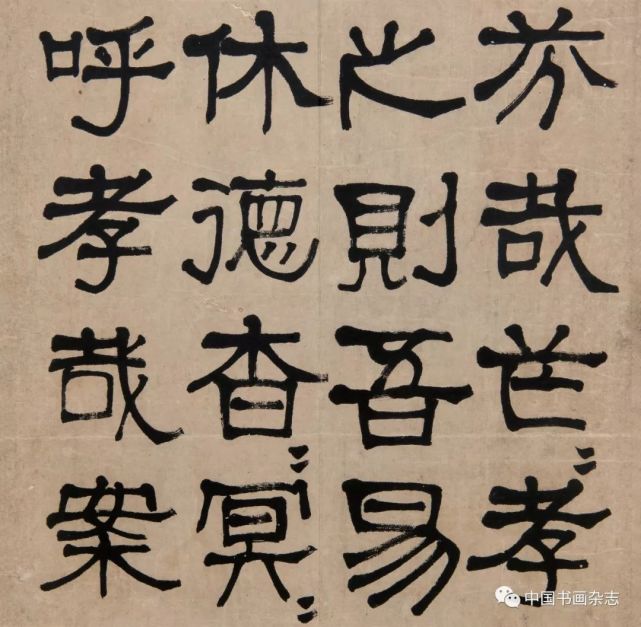 芬哉芒〻孝
之則吾易
休德杳〻冥〻
呼孝哉案
中国书画杂志